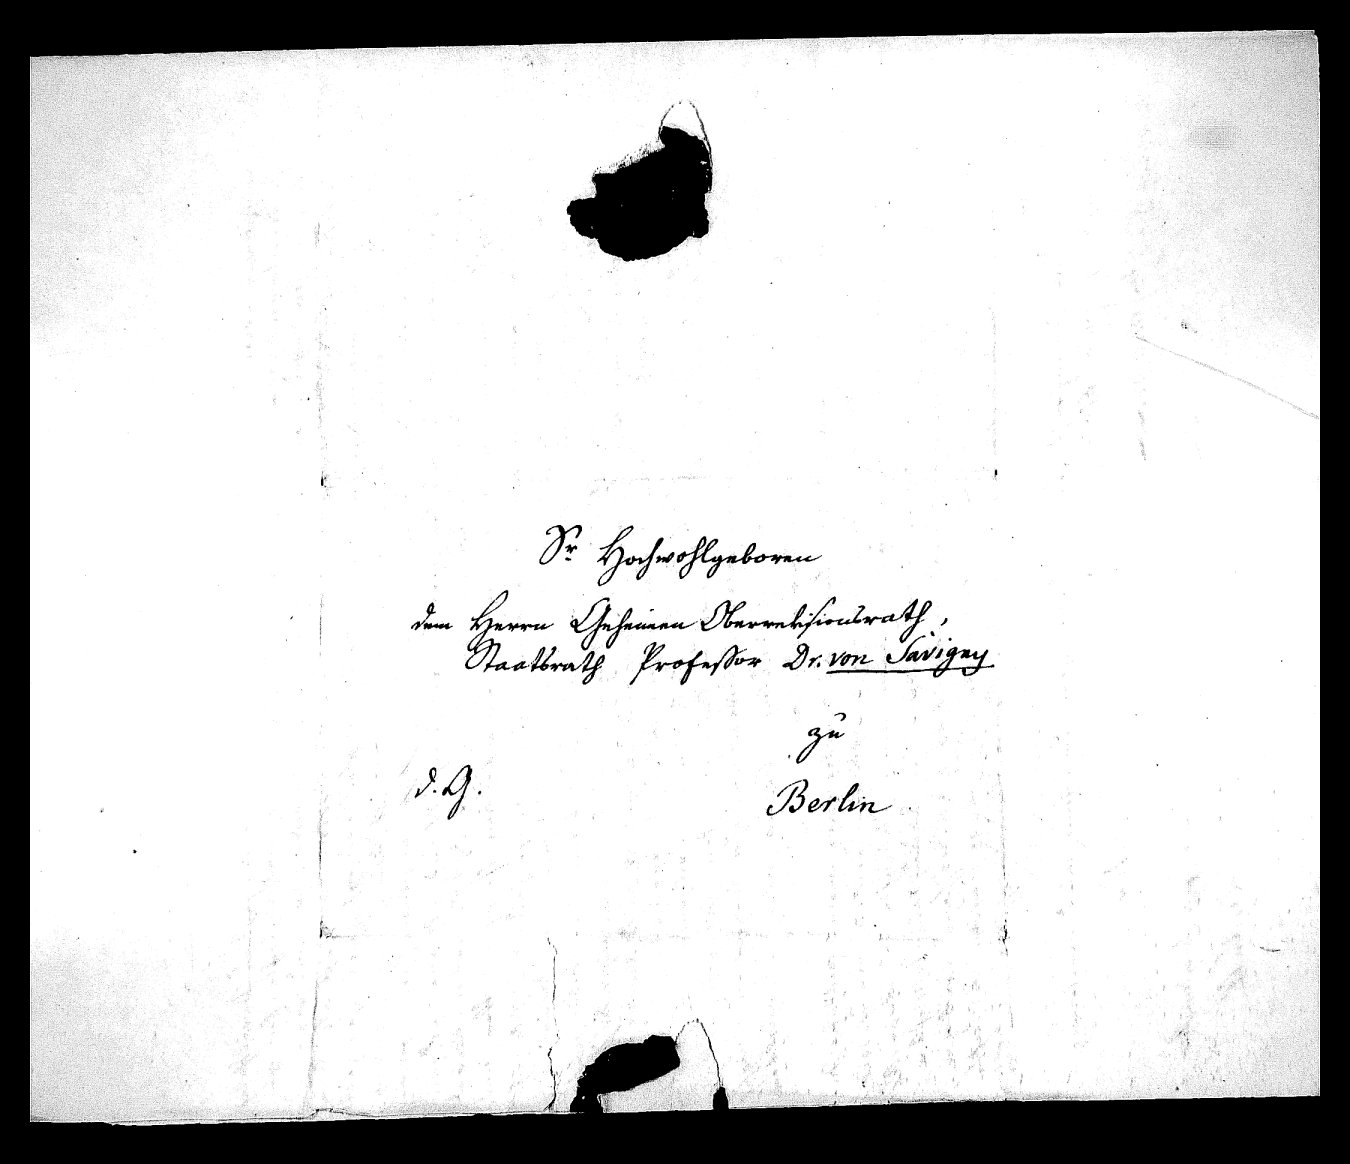 Sr Hochwohlgeboren
dem Herrn Geheimen Oberrevisionsrath,
Staatsrath Professor Dr. von Savigny
zu
d. G.
Berlin